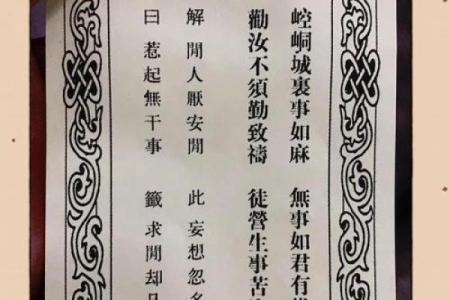 崆峒城裏事如麻 無事如君有
勸汝不須勤致禱 徒營生事苦
解 閒人厭安閒 此妄想忽
曰 惹起無干事 籤求閒却